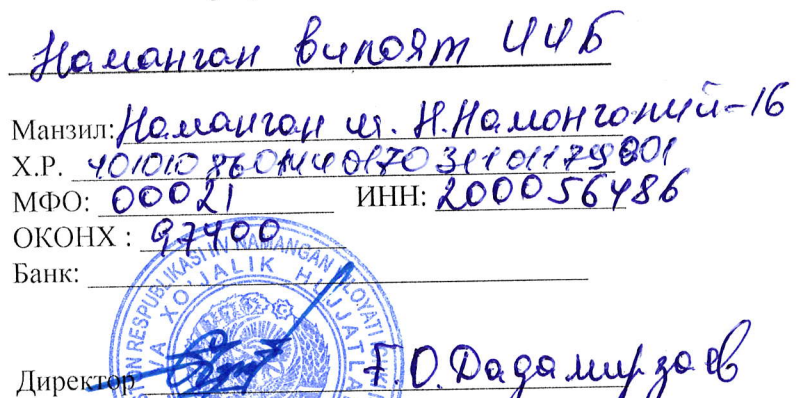 Наманган вилоят ИИБ
Манзил: Наманган ш. Н.Намонгоний-16
Х.Р. 401010860144017031101179001
МФО: 00021 ИНН: 200056486
ОКОНХ : 97400
Банк:
Директор Ғ.О.Дадамирзаев
NAMANGAN
XO'JALIK HUJJATLA